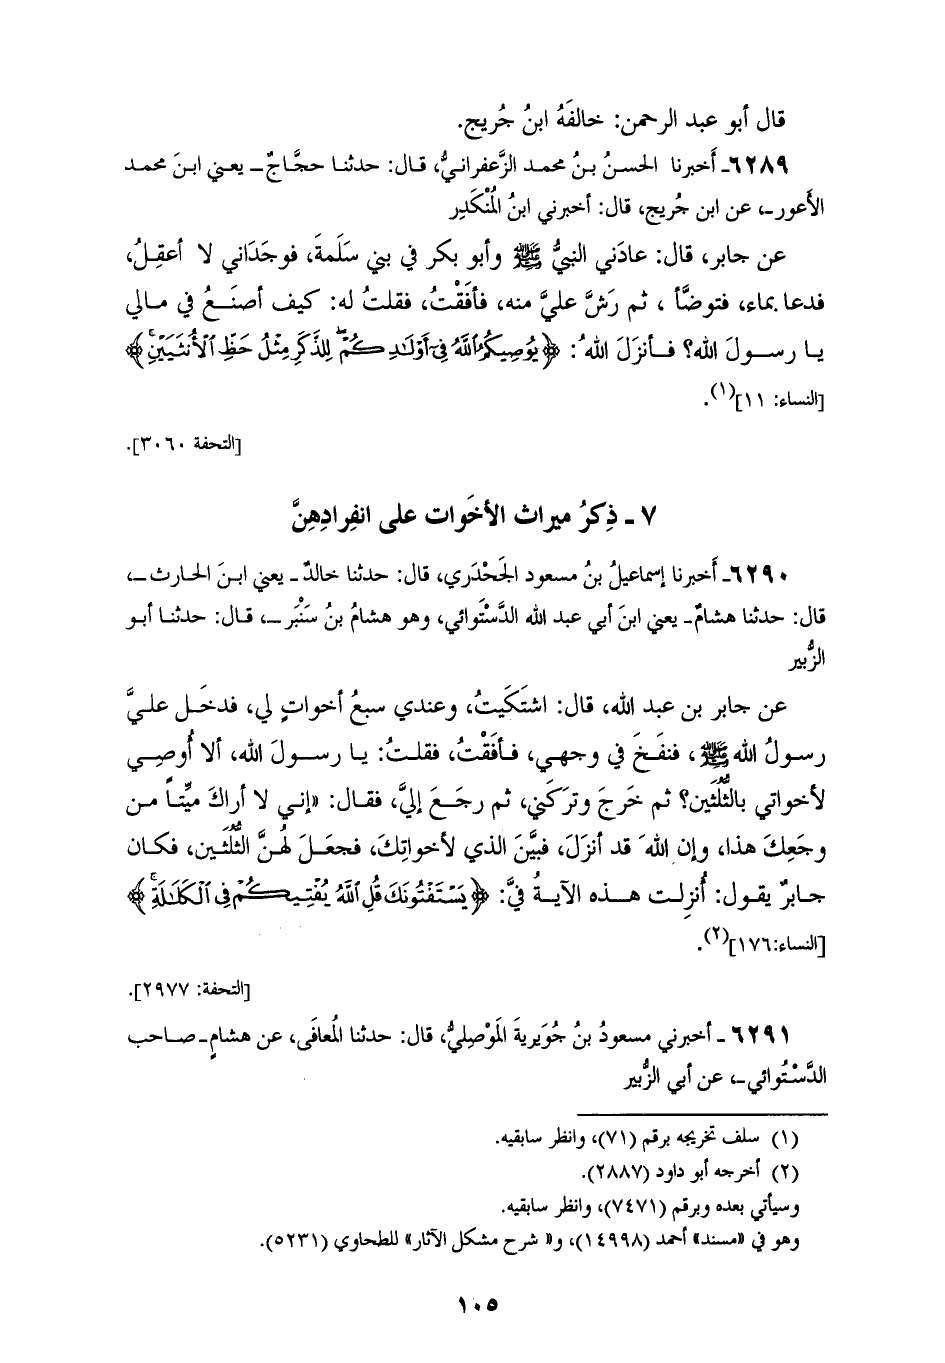 قال أبو عبد الرحمن: خالفَهُ ابنُ جُريج.
٦٢٨٩ـ أَخبرنا الحسنُ بنُ محمد الزَّعفرانيُّ، قال: حدثنا حجَّاجٌ ـ يعني ابنَ محمد
الأَعور ـ، عن ابن جُريج، قال: أخبرني ابنُ المُنْكَدِر
عن جابر، قال: عادَني النبيُّ ﷺ وأبو بكر في بني سَلَمةَ، فوجَدَاني لا أعقِلُ،
فدعا بماء، فتوضَّأ ، ثم رَشَّ عليَّ منه، فأفَقْتُ، فقلتُ له: كيف أصنَعُ في مالي
يا رسولَ الله؟ فأنزَلَ اللهُ: ﴿يُوصِيكُمُ ٱللَّهُ فِىٓ أَوْلَٰدِكُمْ ۖ لِلذَّكَرِ مِثْلُ حَظِّ ٱلْأُنثَيَيْنِ ۚ﴾
[النساء: ١١](١).
[التحفة ٣٠٦٠].
٧ ـ ذِكرُ ميراث الأخَوات على انفِرادِهِنَّ
٦٢٩٠ـ أَخبرنا إسماعيلُ بنُ مسعود الجَحْدَري، قال: حدثنا خالدٌ ـ يعني ابنَ الحارث ـ،
قال: حدثنا هشامٌ ـ يعني ابنَ أبي عبد الله الدَّسْتَوائي، وهو هشامُ بنُ سَنْبَر ـ، قال: حدثنا أبو
الزُّبير
عن جابر بن عبد الله، قال: اشتَكَيتُ، وعندي سبعُ أخواتٍ لي، فدخَل عليَّ
رسولُ الله ﷺ، فنفَخَ في وجهي، فأفَقْتُ، فقلتُ: يا رسولَ الله، ألا أُوصِي
لأخواتي بالثُّلُثَين؟ ثم خَرجَ وتركَني، ثم رجَعَ إليَّ، فقال: «إني لا أراكَ ميِّتاً من
وجَعِكَ هذا، وإن اللهَ قد أنزَلَ، فبيَّنَ الذي لأخواتِكَ، فجعَلَ لهُنَّ الثُّلثَين، فكان
جابرٌ يقول: أُنزِلت هذه الآيةُ فيَّ: ﴿يَسْتَفْتُونَكَ قُلِ ٱللَّهُ يُفْتِيكُمْ فِى ٱلْكَلَٰلَةِ ۚ﴾
[النساء:١٧٦](٢).
[التحفة: ٢٩٧٧].
٦٢٩١ ـ أخبرني مسعودُ بنُ جُوَيرِيةَ المَوْصِليُّ، قال: حدثنا المُعافَى، عن هشامٍ ـ صاحب
الدَّسْتُوائي ـ، عن أبي الزُّبير
(١) سلف تخريجه برقم (٧١)، وانظر سابقيه.
(٢) أخرجه أبو داود (٢٨٨٧).
وسيأتي بعده وبرقم (٧٤٧١)، وانظر سابقيه.
وهو في «مسند» أحمد (١٤٩٩٨)، و« شرح مشكل الآثار» للطحاوي (٥٢٣١).
١٠٥